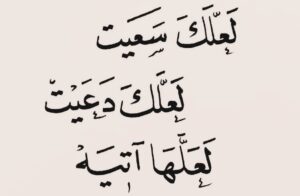 لَعَلَّكَ سَعَيت
لَعَلَّكَ دَعَيْت
لَعَلَّهَا آتِيَه